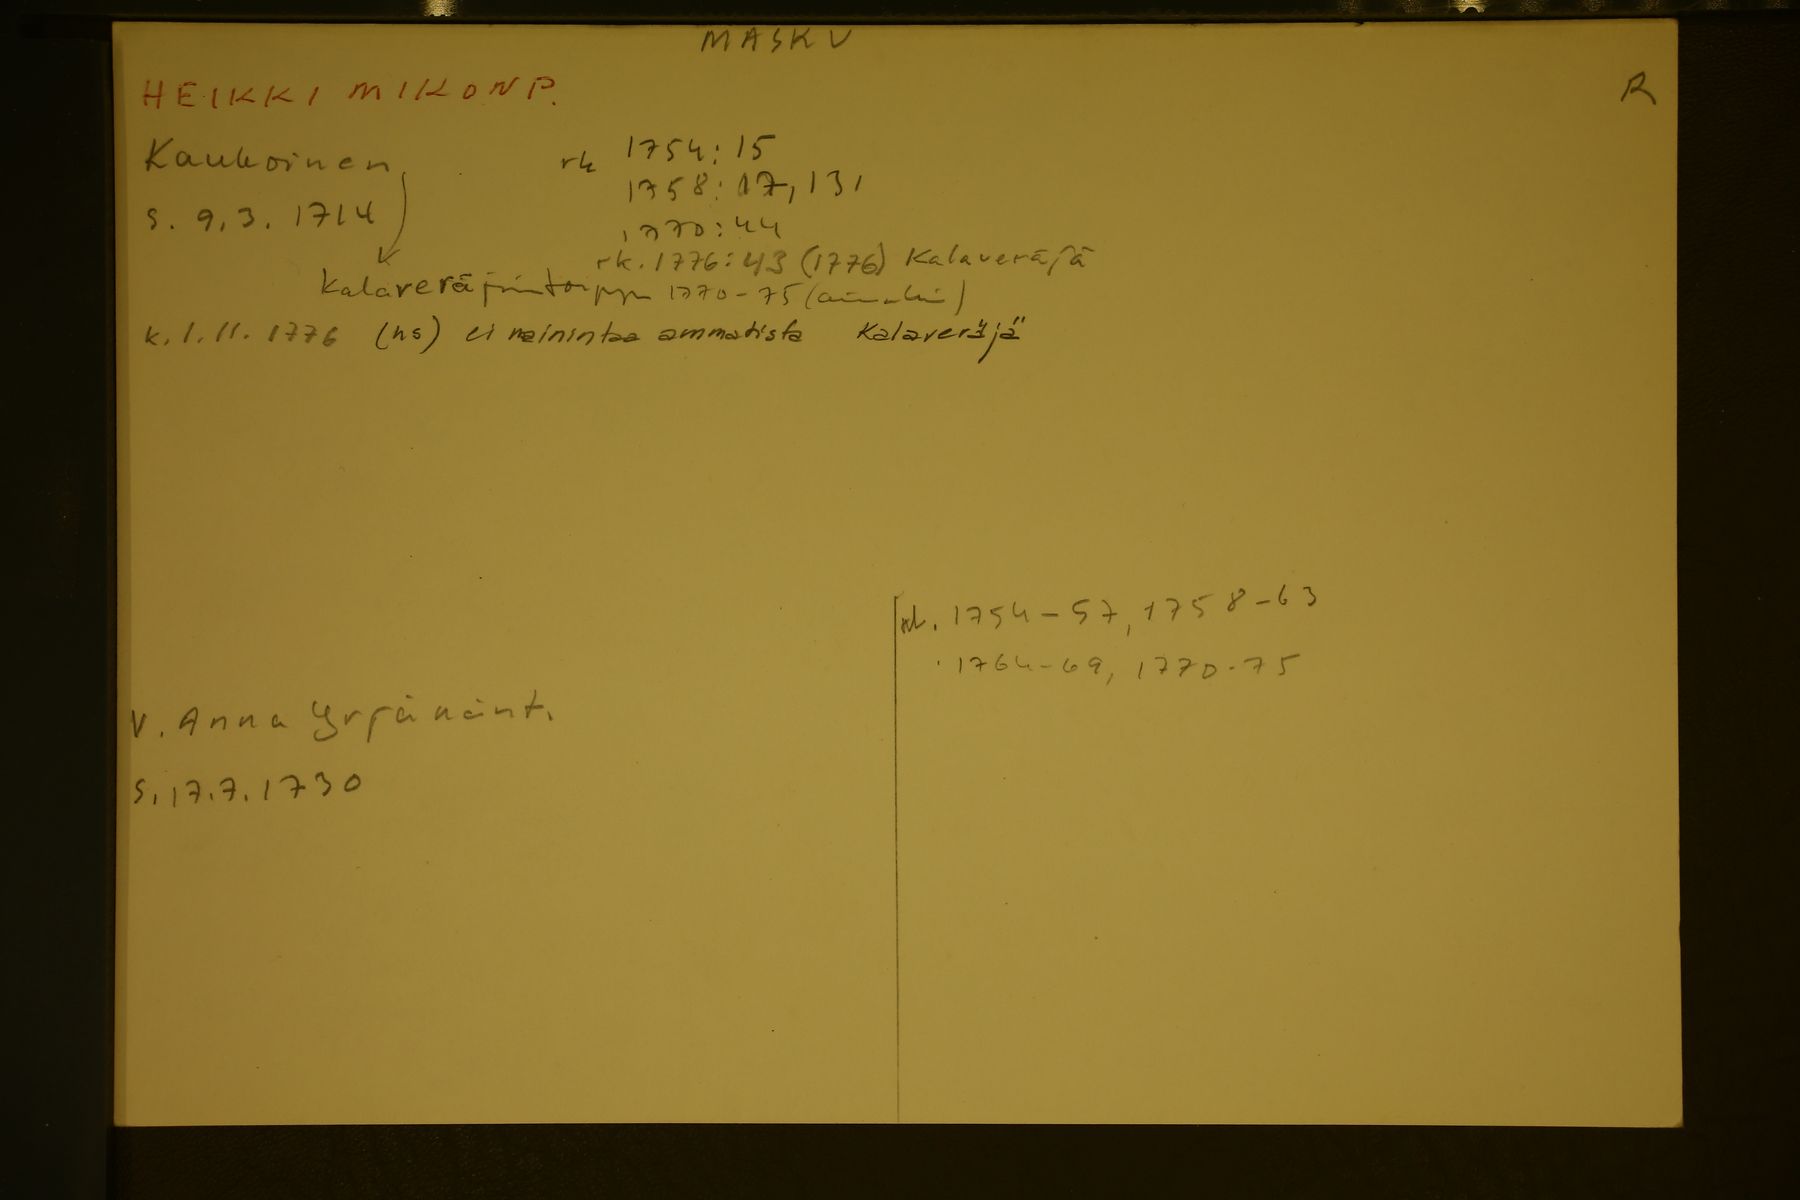 MASKU
HEIKKI MIKONP.
R
Kaukoinen
rk 1754: 15
1758: 17, 131
s. 9.3. 1714
1770: 44
rk. 1776: 43 (1776) Kalaveräjä
Kalaveräjän torppa 1770-75 (ainakin)
k. 1.11. 1776 (hs) ei mainintaa ammatista Kalaveräjä
rk. 1754-57, 1758-63
1764-69, 1770-75
V. Anna Yrjänänt.
s. 17.7.1730